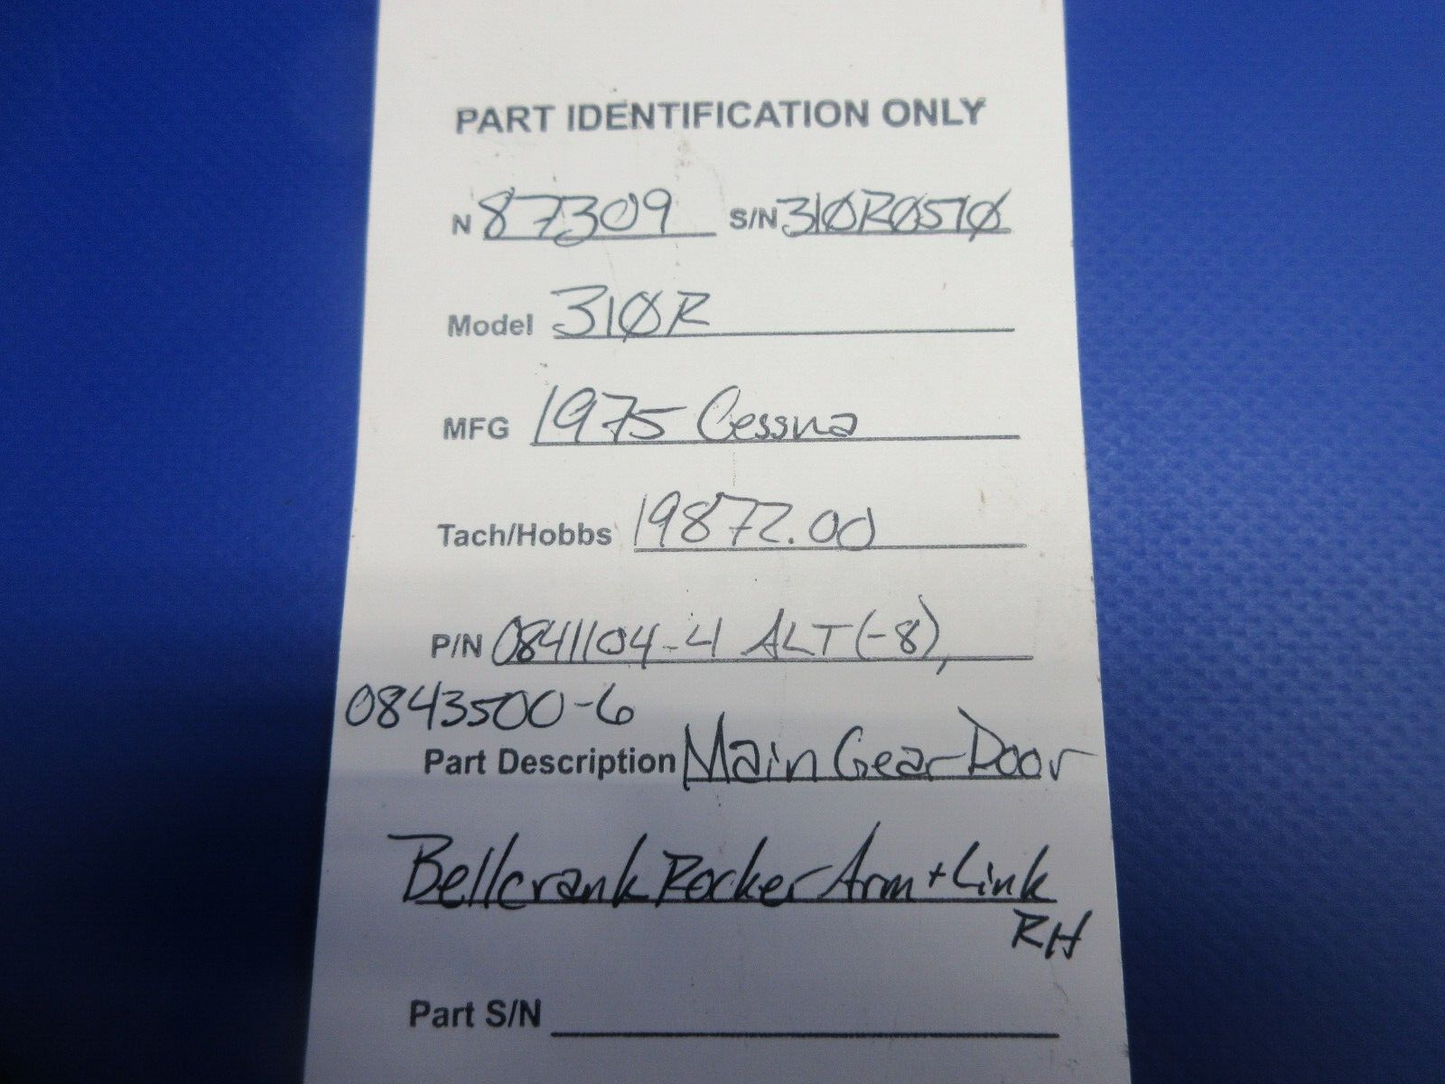 PART IDENTIFICATION ONLY
N 87309 S/N 310R0510
Model 310R
MFG 1975 Cessna
Tach/Hobbs 19872.00
P/N 0841104-4 ALT (-8),
0843500-6
Part Description Main Gear Door
Bellcrank Rocker Arm + Link
RH
Part S/N